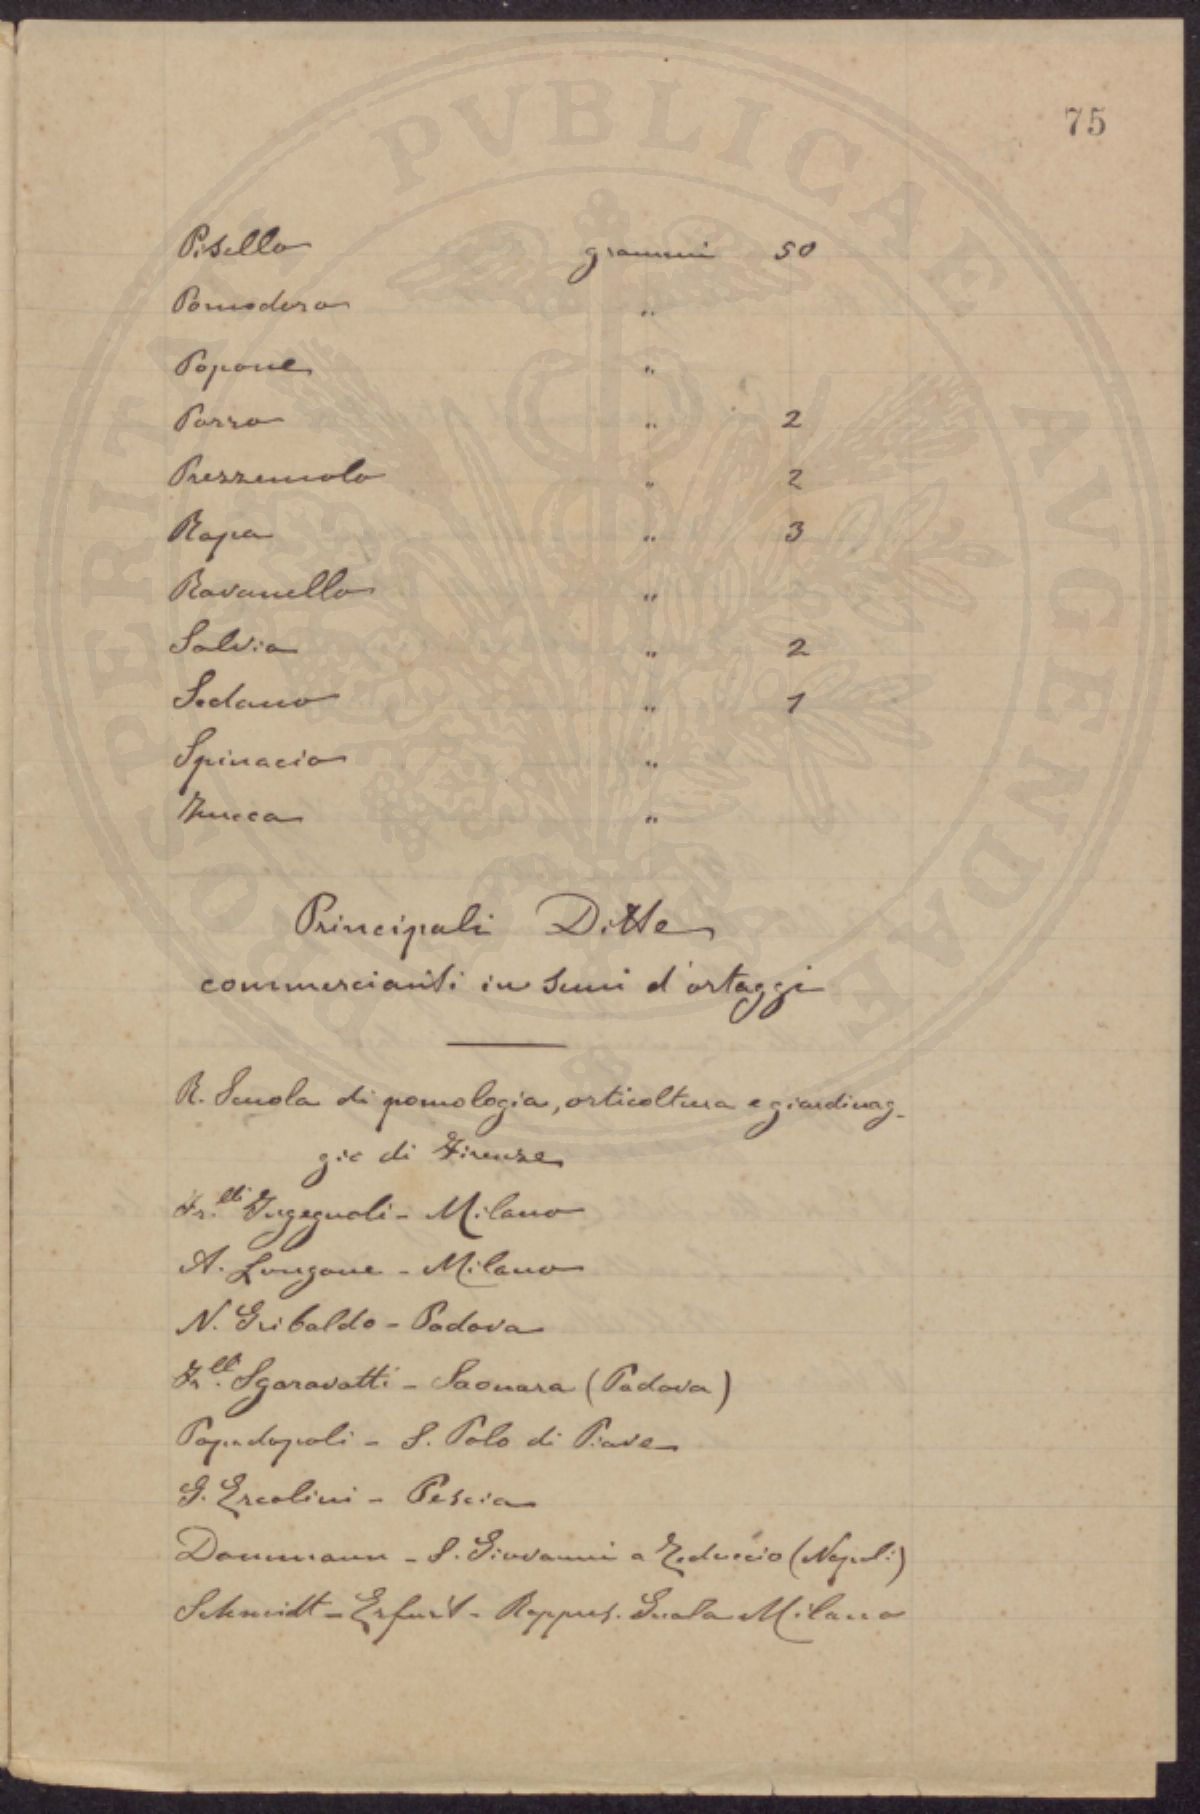 75
Pisello grammi 50
Pomodoro "
Popone "
Porro " 2
Prezzemolo " 2
Rapa " 3
Ravanello "
Salvia " 2
Sedano " 1
Spinacio "
Zucca "
Principali Ditte
commercianti in semi d'ortaggi
R. Scuola di pomologia, orticoltura e giardinag-
gio di Firenze
Fr.lli Ingegnoli - Milano
A. Longone - Milano
N. Gribaldo - Padova
Fr.lli Sgaravatti - Saonara (Padova)
Papadopoli - S. Polo di Piave
G. Ercolini - Pescia
Dammann - S. Giovanni a Teduccio (Napoli)
Schmidt - Erfurt - Rappres. Guala Milano
PROSPERITATI PVBLICAE AVGENDAE